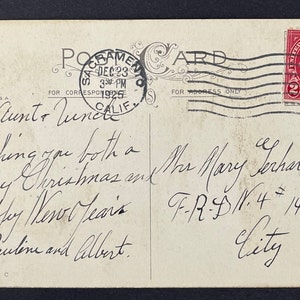 POST CARD
SACRAMENTO
DEC 23
3 30 PM
1925
CALIF.
FOR CORRESPONDENCE
FOR ADDRESS ONLY
2
Aunt + Uncle
hing you both a
y Christmas and
py New Years
auline and Albert.
Mrs Mary Gerhar
F.R.D N. 4 # 14
City
C